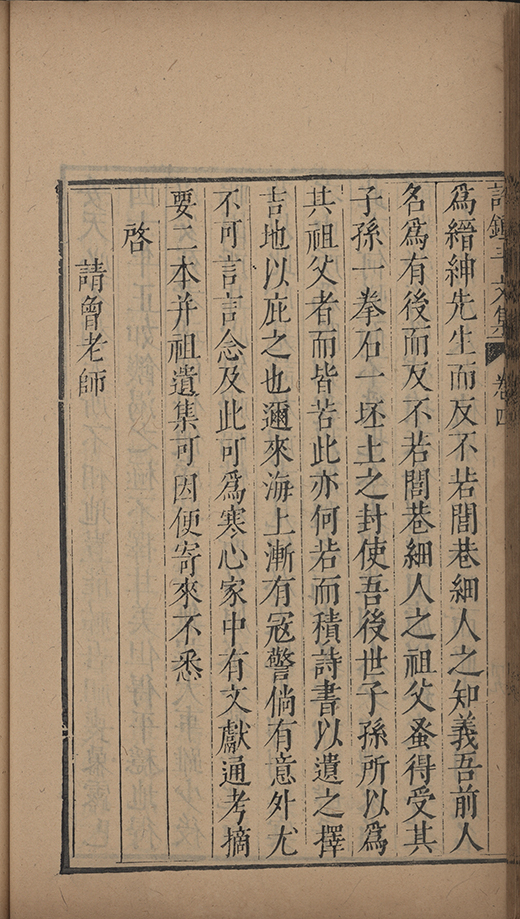 許鍾斗文集 卷四
爲縉紳先生而反不若閭巷細人之知義吾前人
名爲有後而反不若閭巷細人之祖父蚤得受其
子孫一拳石一坯土之封使吾後世子孫所以爲
其祖父者而皆若此亦何若而積詩書以遺之擇
吉地以庇之也邇來海上漸有冦警倘有意外尤
不可言言念及此可爲寒心家中有文獻通考摘
要二本并祖遺集可因便寄來不悉
啓
請會老師